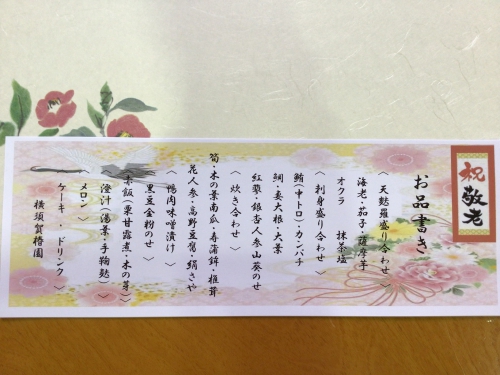 祝 敬老
お品書き
〈天麩羅盛り合わせ〉
海老・茄子・薩摩芋
オクラ 抹茶塩
〈刺身盛り合わせ〉
鮪(中トロ)・カンパチ
鯛・妻大根・大葉
紅蓼・銀杏人参山葵のせ
〈炊き合わせ〉
筍・木の葉南瓜・寿蒲鉾・椎茸
花人参・高野豆腐・絹さや
〈鴨肉味噌漬け〉
黒豆金粉のせ
赤飯(栗甘露煮・木の芽)
澄汁(湯葉・手鞠麩)
メロン
ケーキ・ドリンク〉
横須賀椿園